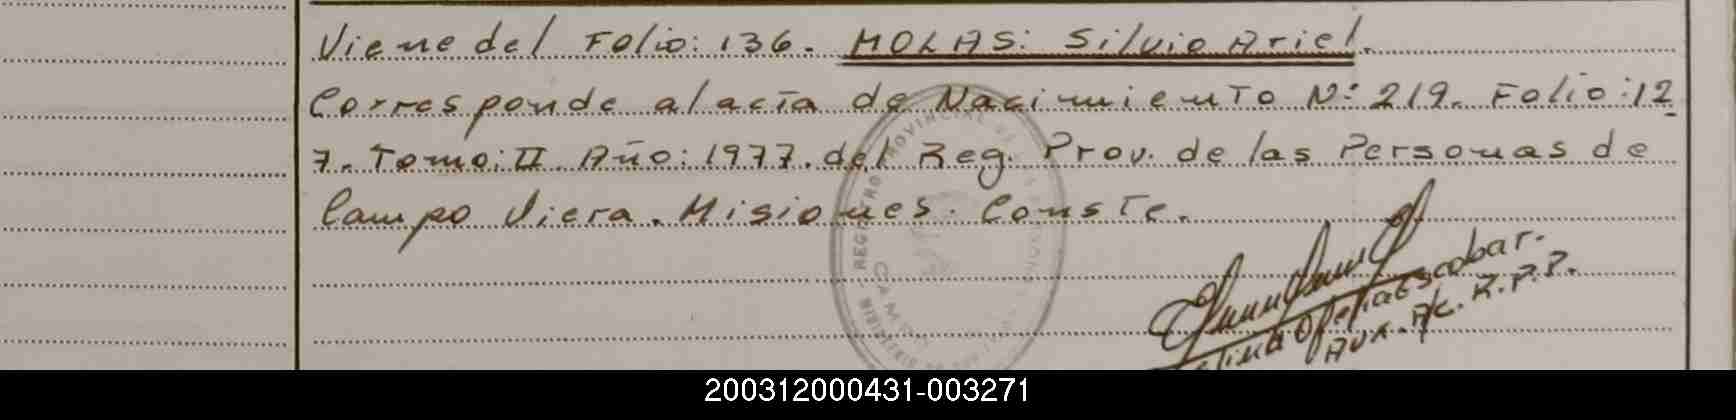 Viene del Folio: 136. MOLAS: Silvio Ariel.
Corresponde al acta de Nacimiento Nº 219. Folio: 12
7. Tomo: II. Año: 1977. del Reg. Prov. de las Personas de
Campo Viera. Misiones. Conste.
REGISTRO PROVINCIAL DE
CAMP
Ofelia Escobar.
Aux. A/C. R.P.P.
200312000431-003271